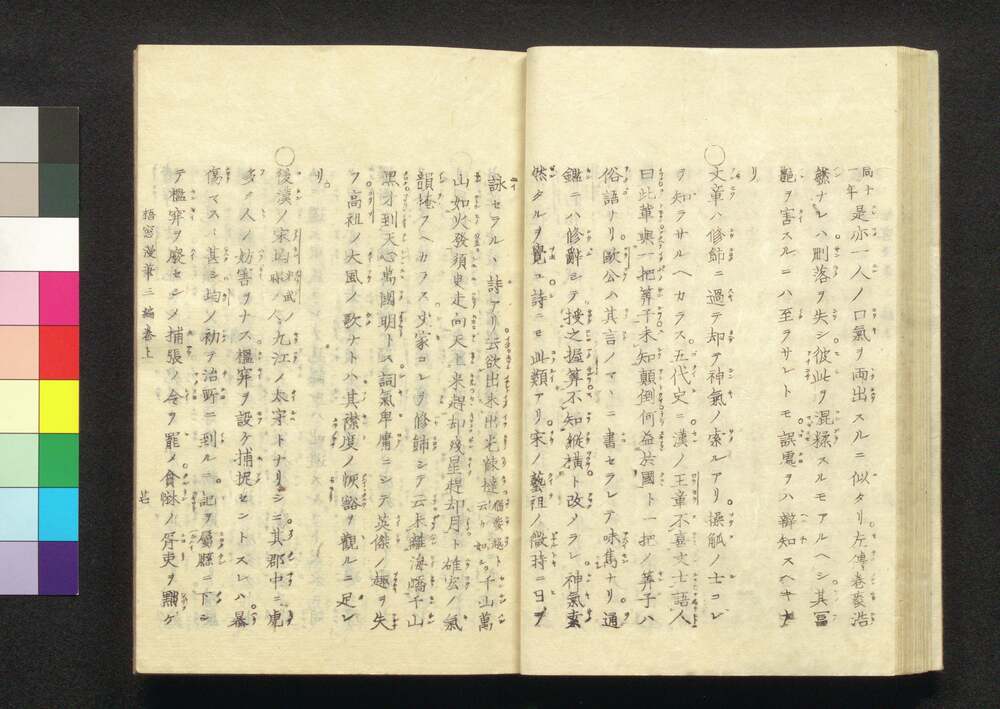 局十一年 是亦一人ノ口氣ヲ両出スルニ似タリ左傳卷袠浩
繁ナレハ刪落ヲ失シ彼此ヲ混糅スルモアルヘシ其冨
艶ヲ害スルニハ至ラサレトモ誤寃ヲハ辯知スヘキナ
リ
○文章ハ修飾ニ過テ却テ神氣ノ索ルアリ操觚ノ士コレ
ヲ知ラサルヘカラス五代史ニ漢ノ王章不喜文士語人
曰此輩與一把筭子未知顛倒何益於國ト一把ノ筭子ハ
俗語ナリ歐公ハ其言ノマヽニ書セラレテ味雋ナリ通
鑑ニハ修辭シテ授之握筭不知縱横ト改メラレ神氣索
然タルヲ覺ユ詩ニモ此類アリ宋ノ藝祖ノ微時ニ日ヲ
詠セラルヽ詩アリ云欲出未出光辣撻 千山萬
山如火發須臾走向天上来趕却殘星趕却月ト確宏ノ氣
韻掩フヘカラス史家コレヲ修飾シテ云未離海嶠千山
黒才到天心萬國明トス詞氣卑庸ニシテ英傑ノ趣ヲ失
フ高祖ノ大風ノ歌ナトハ其襟度ノ恢豁ヲ觀ルニ足レ
リ
○後漢ノ宋均 ノ人九江ノ太守トナリシニ其郡中ニ虎
多ク人ノ妨害ヲナス檻穽ヲ設ケ捕捉セントスレハ暴
傷マスマス甚シ均ノ初ヲ治所ニ到ルニ記ヲ屬縣ニ下シ
テ檻穽ヲ廢セシメ捕張ノ令ヲ罷メ貪 ノ胥吏ヲ黜ケ
梧窓漫筆三編卷上